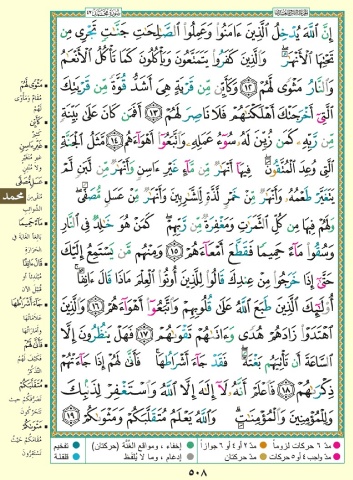 سُورَةُ مُحَمَّدٍ ٤٧
إِنَّ ٱللَّهَ يُدْخِلُ ٱلَّذِينَ ءَامَنُوا۟ وَعَمِلُوا۟ ٱلصَّٰلِحَٰتِ جَنَّٰتٍ تَجْرِى مِن
تَحْتِهَا ٱلْأَنْهَٰرُ ۖ وَٱلَّذِينَ كَفَرُوا۟ يَتَمَتَّعُونَ وَيَأْكُلُونَ كَمَا تَأْكُلُ ٱلْأَنْعَٰمُ
وَٱلنَّارُ مَثْوًى لَّهُمْ ١٢ وَكَأَيِّن مِّن قَرْيَةٍ هِىَ أَشَدُّ قُوَّةً مِّن قَرْيَتِكَ
ٱلَّتِىٓ أَخْرَجَتْكَ أَهْلَكْنَٰهُمْ فَلَا نَاصِرَ لَهُمْ ١٣ أَفَمَن كَانَ عَلَىٰ بَيِّنَةٍ
مِّن رَّبِّهِۦ كَمَن زُيِّنَ لَهُۥ سُوٓءُ عَمَلِهِۦ وَٱتَّبَعُوٓا۟ أَهْوَآءَهُم ١٤ مَّثَلُ ٱلْجَنَّةِ
ٱلَّتِى وُعِدَ ٱلْمُتَّقُونَ ۖ فِيهَآ أَنْهَٰرٌ مِّن مَّآءٍ غَيْرِ ءَاسِنٍ وَأَنْهَٰرٌ مِّن لَّبَنٍ لَّمْ
يَتَغَيَّرْ طَعْمُهُۥ وَأَنْهَٰرٌ مِّنْ خَمْرٍ لَّذَّةٍ لِّلشَّٰرِبِينَ وَأَنْهَٰرٌ مِّنْ عَسَلٍ مُّصَفًّى ۖ
وَلَهُمْ فِيهَا مِن كُلِّ ٱلثَّمَرَٰتِ وَمَغْفِرَةٌ مِّن رَّبِّهِمْ ۖ كَمَنْ هُوَ خَٰلِدٌ فِى ٱلنَّارِ
وَسُقُوا۟ مَآءً حَمِيمًا فَقَطَّعَ أَمْعَآءَهُمْ ١٥ وَمِنْهُم مَّن يَسْتَمِعُ إِلَيْكَ
حَتَّىٰٓ إِذَا خَرَجُوا۟ مِنْ عِندِكَ قَالُوا۟ لِلَّذِينَ أُوتُوا۟ ٱلْعِلْمَ مَاذَا قَالَ ءَانِفًا ۚ
أُو۟لَٰٓئِكَ ٱلَّذِينَ طَبَعَ ٱللَّهُ عَلَىٰ قُلُوبِهِمْ وَٱتَّبَعُوٓا۟ أَهْوَآءَهُمْ ١٦ وَٱلَّذِينَ
ٱهْتَدَوْا۟ زَادَهُمْ هُدًى وَءَاتَىٰهُمْ تَقْوَىٰهُمْ ١٧ فَهَلْ يَنظُرُونَ إِلَّا
ٱلسَّاعَةَ أَن تَأْتِيَهُم بَغْتَةً ۖ فَقَدْ جَآءَ أَشْرَاطُهَا ۚ فَأَنَّىٰ لَهُمْ إِذَا جَآءَتْهُمْ
ذِكْرَىٰهُمْ ١٨ فَٱعْلَمْ أَنَّهُۥ لَآ إِلَٰهَ إِلَّا ٱللَّهُ وَٱسْتَغْفِرْ لِذَنۢبِكَ
وَلِلْمُؤْمِنِينَ وَٱلْمُؤْمِنَٰتِ ۗ وَٱللَّهُ يَعْلَمُ مُتَقَلَّبَكُمْ وَمَثْوَىٰكُمْ ١٩
مَثْوًى لَهُمْ
مُقَامٌ وَمَأْوًى
لَهُمْ
كَأَيِّن
كَثِيرٌ
غَيْرِ ءَاسِنٍ
غَيْرِ مُتَغَيِّرٍ
وَلَا مُنْتِنٍ
عَسَلٍ مُصَفًّى
مُنَقًّى مِنَ
الشَّوَائِبِ
محمد
مَاءً حَمِيمًا
بَالِغًا الغَايَةَ فِي
الحَرَارَةِ
قَالَ ءَانِفًا
مُبْتَدِئًا أَو
قُبَيْلَ الآنَ
جَاءَ أَشْرَاطُهَا
عَلَامَاتُهَا
وَأَمَارَاتُهَا
فَأَنَّىٰ لَهُمْ
فَكَيْفَ لَهُمُ
التَّذَكُّرُ
مُتَقَلَّبَكُمْ
تَصَرُّفَكُمْ حَيْثُ
تَتَحَرَّكُونَ
مَثْوَاكُمْ
مُقَامَكُمْ حَيْثُ
تَسْتَقِرُّونَ
مدّ ٦ حركات لزوماً مدّ ٢ أو ٤ أو ٦ جوازاً إخفاء، ومواقع الغُنَّة (حركتان) تفخيم
مدّ واجب ٤ أو ٥ حركات مدّ حركتان إدغام، وما لا يُلفَظ قلقلة
٥٠٨